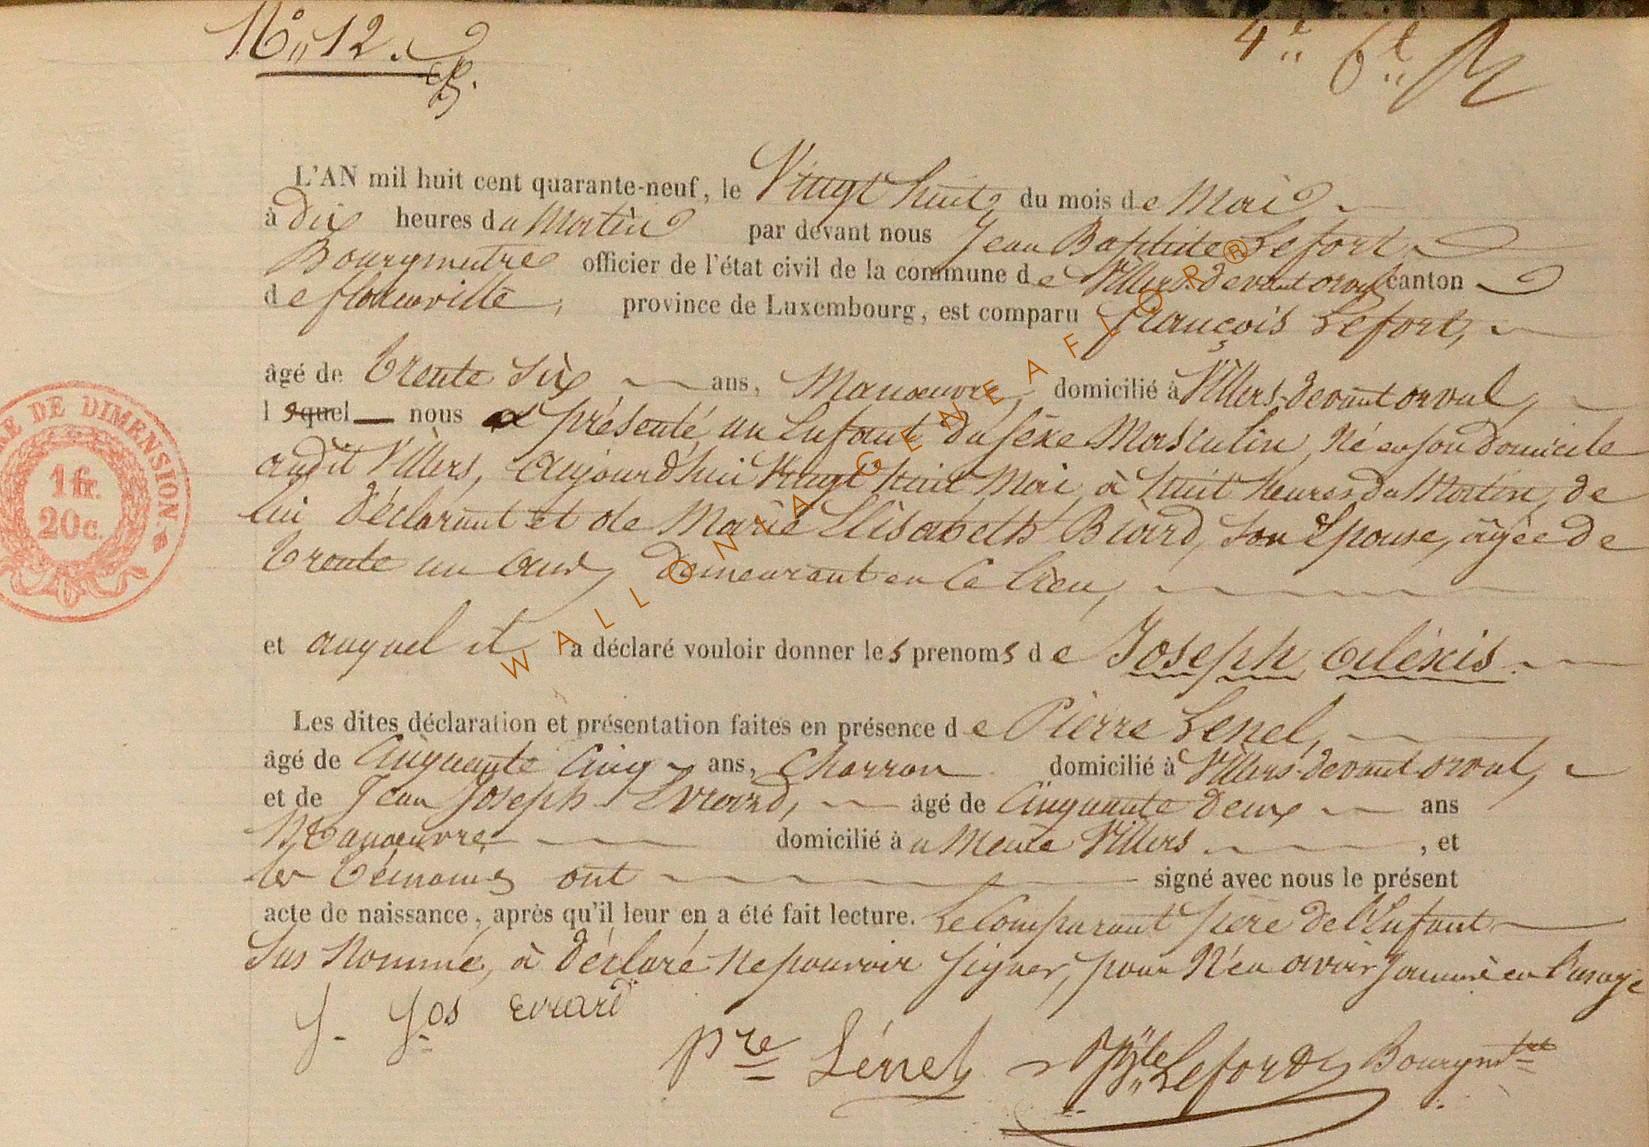 N° 12.
4e ft
L'AN mil huit cent quarante-neuf, le Vingt huit, du mois de Mai
à dix heures du Matin par devant nous Jean Baptiste Lefort,
Bourgmestre officier de l'état civil de la commune de Villers-devant orval canton
de florenville, province de Luxembourg, est comparu François Lefort,
âgé de trente six ans, Manœuvre, domicilié à Villers-devant orval,
lequel nous a présenté un Enfant du sexe Masculin, Né en son domicile
audit Villers, aujourd'hui Vingt huit Mai, à huit heures du Matin, de
lui Déclarant et de Marie Elisabeth Biard, son Epouse, âgée de
trente un ans, demeurant en Ce lieu,
et auquel il a déclaré vouloir donner les prenoms de Joseph Aléxis
Les dites déclaration et présentation faites en présence de Pierre Lenel,
âgé de Cinquante Cinq ans, Charron domicilié à Villers-devant orval,
et de Jean Joseph Evrard, âgé de Cinquante deux ans
Manœuvre domicilié à u Meme Villers, et
les témoins ont signé avec nous le présent
acte de naissance, après qu'il leur en a été fait lecture. Le Comparant père de l'Enfant
sus Nommé, à Déclaré Ne pouvoir signer, pour N'en avoir jamais eu l'usage
J. Jos Evrard
Pre Lénel
JBte Lefort Bourgmtre
RE DE DIMENSION.
1 fr.
20 c.
WALLONIA GENEAFLOR®